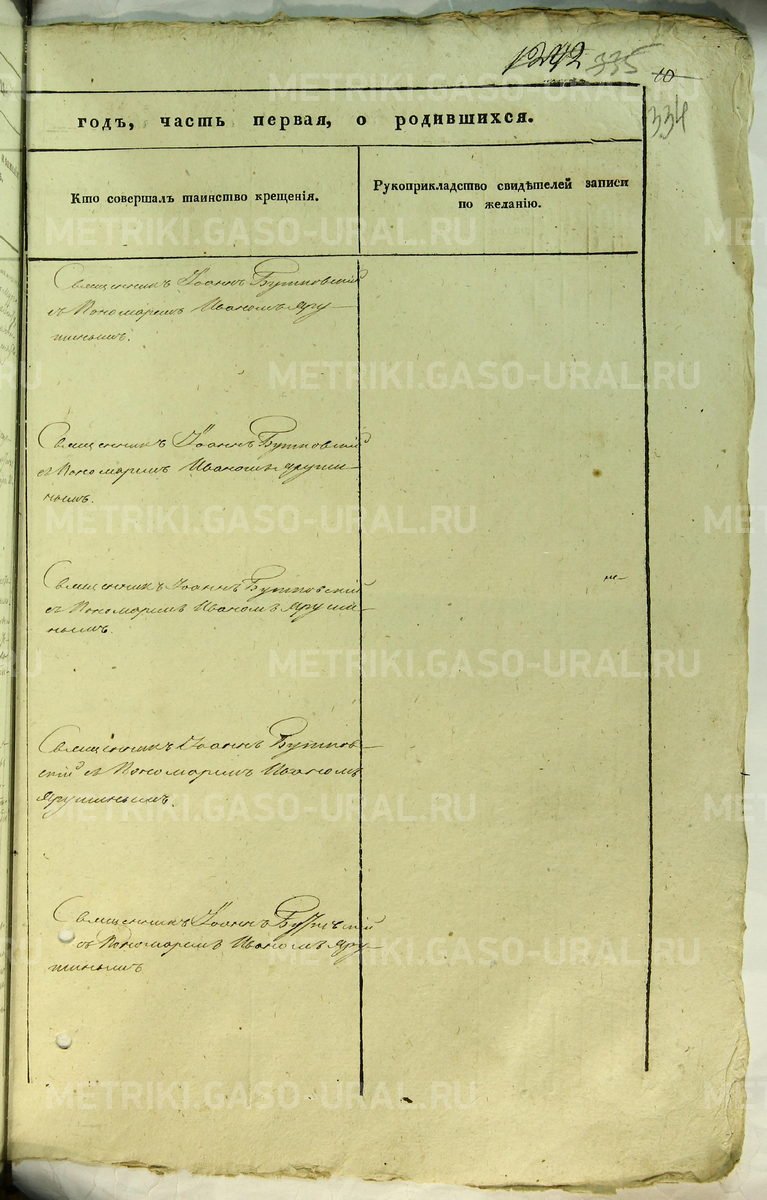 1242 335 10
334
годъ, часть первая, о родившихся.
Кто совершалъ таинство крещенія.
Рукоприкладство свидѣтелей записи
по желанію.
Священникъ Іоаннъ Бутковскій
съ Пономаремъ Иваномъ Яру-
шинымъ.
Священникъ Іоаннъ Бутковскій
съ Пономаремъ Иваномъ Яруши-
нымъ.
Священникъ Іоаннъ Бутковскій
съ Пономаремъ Иваномъ Яруши-
нымъ.
Священникъ Іоаннъ Бутков-
скій съ Пономаремъ Иваномъ
Ярушинымъ.
Священникъ Іоаннъ Бутковскій
съ Пономаремъ Иваномъ Яру-
шинымъ
METRIKI.GASO-URAL.RU
METRIKI.GASO-URAL.RU
METRIKI.GASO-URAL.RU
METRIKI.GASO-URAL.RU
METRIKI.GASO-URAL.RU
METRIKI.GASO-URAL.RU
METRIKI.GASO-URAL.RU
METRIKI.GASO-URAL.RU